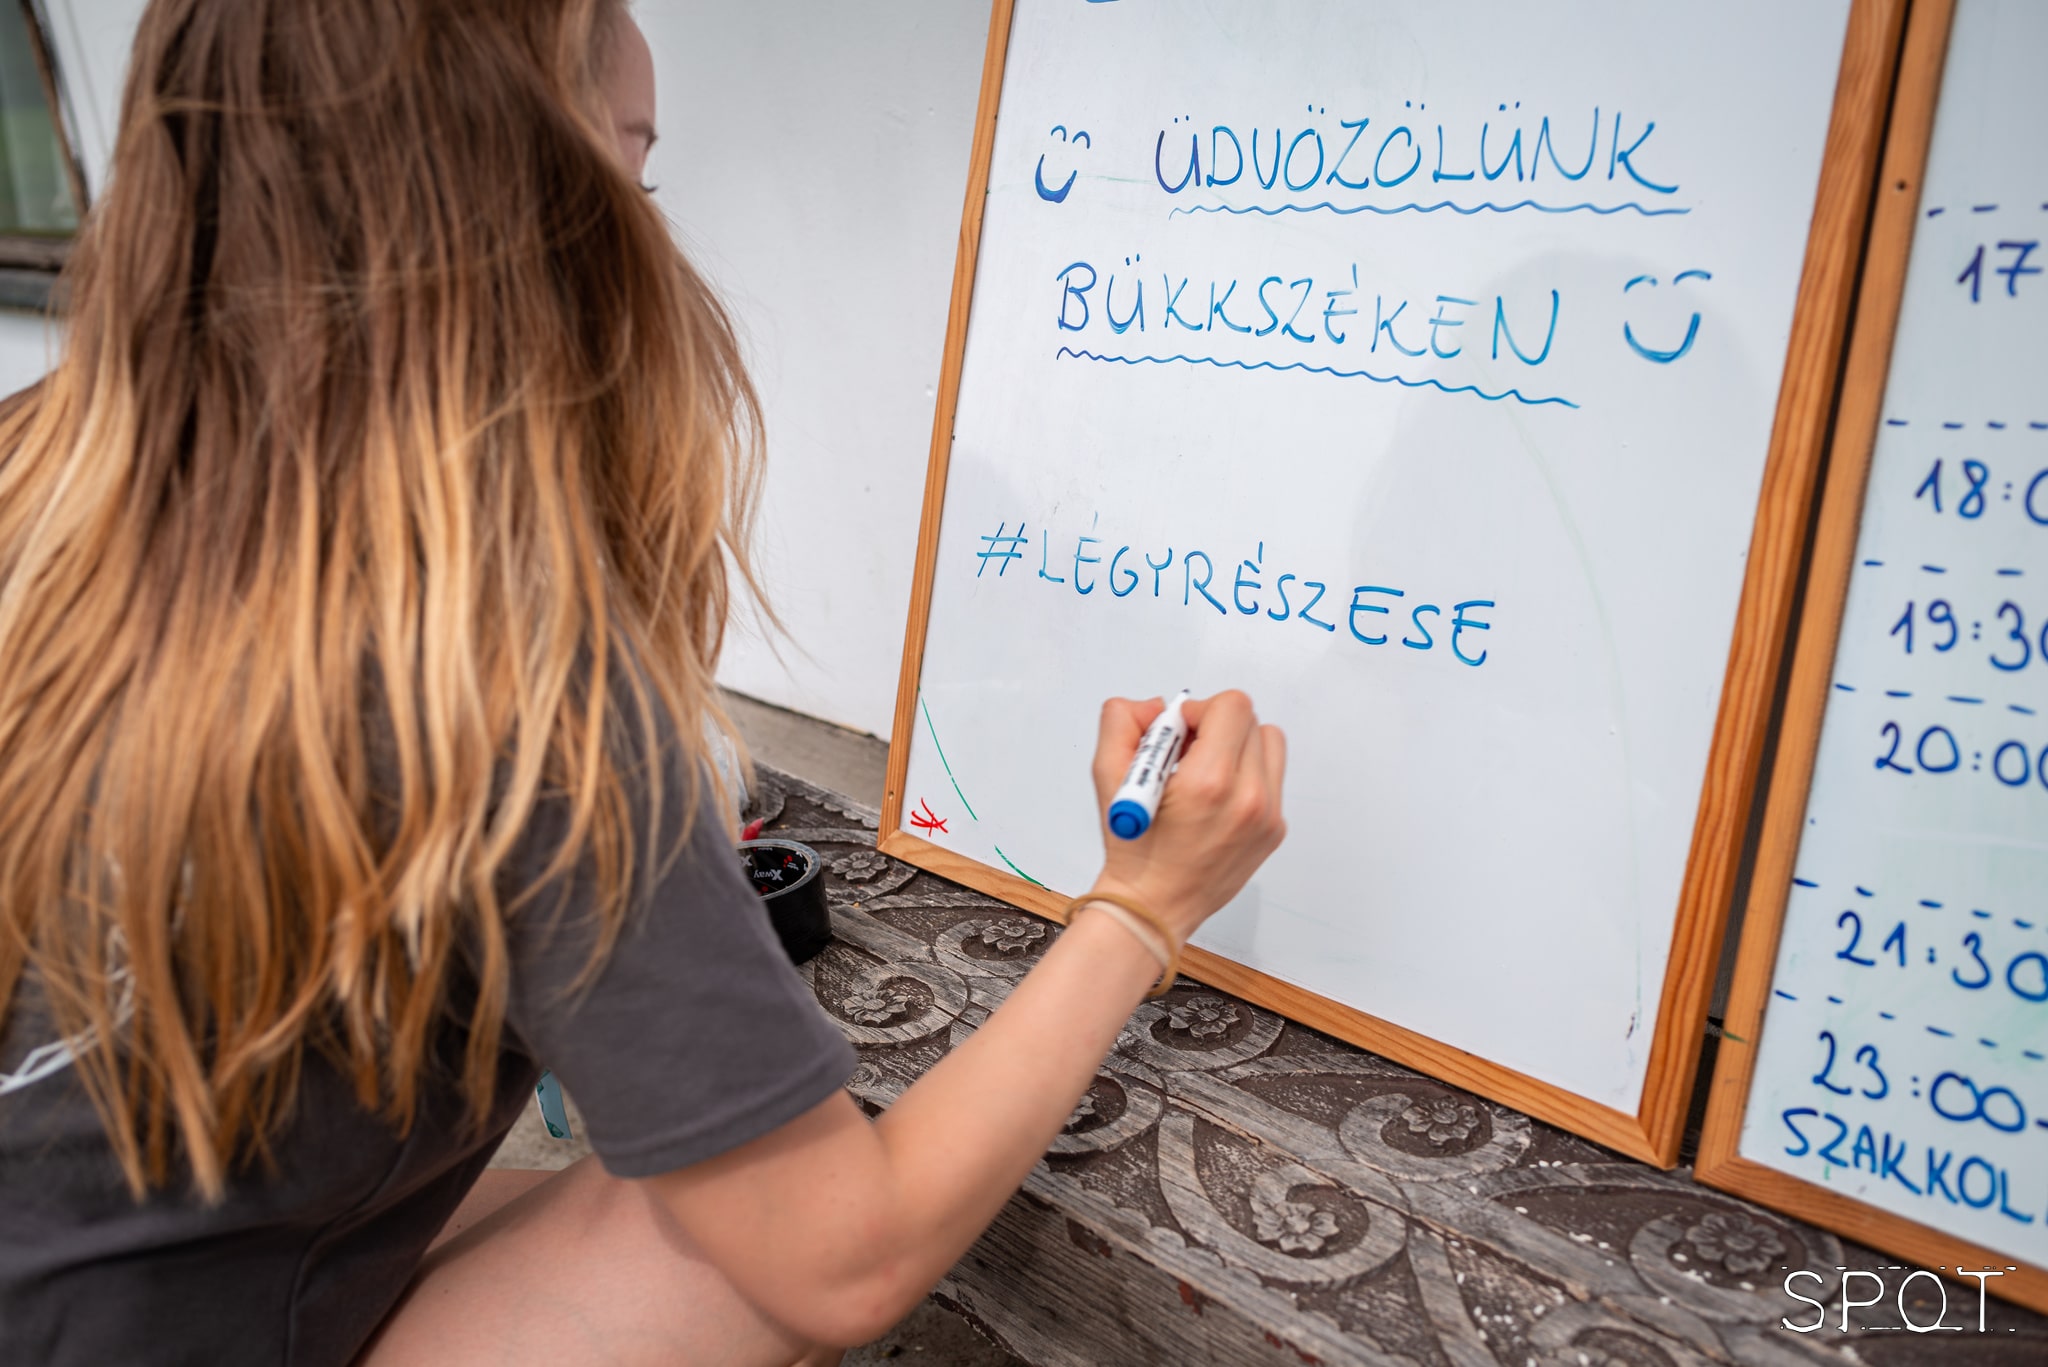 ÜDVÖZÖLÜNK
BÜKKSZÉKEN
#LÉGYRÉSZESE
17
18:0
19:30
20:00
21:30
23:00-
SZAKKOL
Xway
SPOT